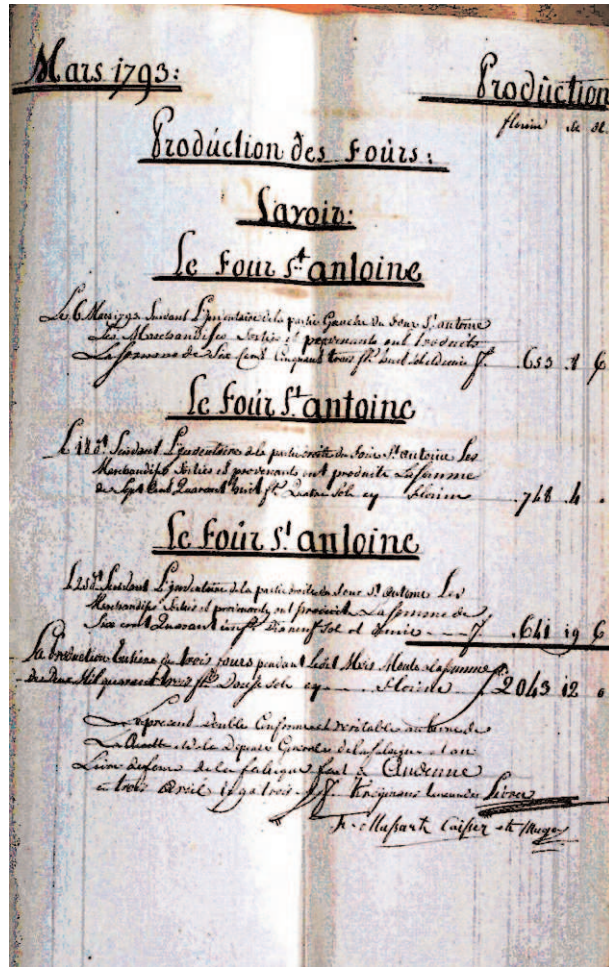 Mars 1793: Production
florin
Production des Fours:
Savoir:
Le Four St. antoine
Le 6 Mars 1793 Suivant L'inventaire de la partie Gauche du four St. antoine
Les Marchandises Sorties et provenants ont Produits
La somme de Six Cent Cinquant trois fl. huit sols demie f. 653 8 6
Le Four St antoine
Le 18 do. Suivant L'inventaire de la partie droite du four St. antoine Les
Marchandises Sorties et provenants ont produits La somme
de Sept Cent Quarant huit fl. Quatre Sols cy Florins 748 4
Le Four St antoine
Le 25 do. Suivant L'inventaire de la partie droite du four St. antoine Les
Marchandises Sorties et provenants ont produit La somme de
Six cent Quarant fl. Dix neuf sols et demie f. 641 19 6
La Production Entiere des trois fours pendant Ledit Mois Monte a la somme
de Deux Mil quarant trois fls. Douse Sols cy Florins f 2043 12 0
Le present Double Conforme et veritable au
La Recette et de la Depense General de la fabrique et au
Livre de la fabrique fait à Andenne
trois Avril 1793 trois Livres
F. Massart Caissier